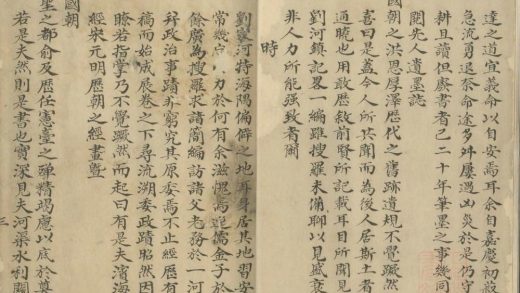 達之道宜義命以自安焉耳余自嘉慶初
急流勇退奈命途多舛屢遇凶災於是仍守
耕且讀但廢書者已二十年筆墨之事幾同
閱先人遺墨誌
國朝之洪恩厚澤歷代之舊跡遺規不覺蹶然
喜曰是蓋今人所共聞而為後人居斯土者
通曉也用敢歷敘前賢所記載耳目所聞見
劉河鎮記畧一編雖搜羅未備聊以見盛衰
非人力所能強致者爾
時
劉家河特海隅偏僻之地耳身居其地習安
常幾戶力於何有余滋愧焉迺儒金子於
餘廣為搜羅求諸簡編訪諸父老務於一河
弁政治事蹟亦窮究其原委焉不止經歷有
稿而始成展卷之下尋流溯委政蹟昭然因
瞭若指掌乃不覺蹶然而起曰有是夫濱海
經宋元明歷朝之經畫暨
國朝
聖之都俞及歷任憲臺之殫精竭慮以底於奠
若是夫然則是書也實深見夫河渠水利關
三